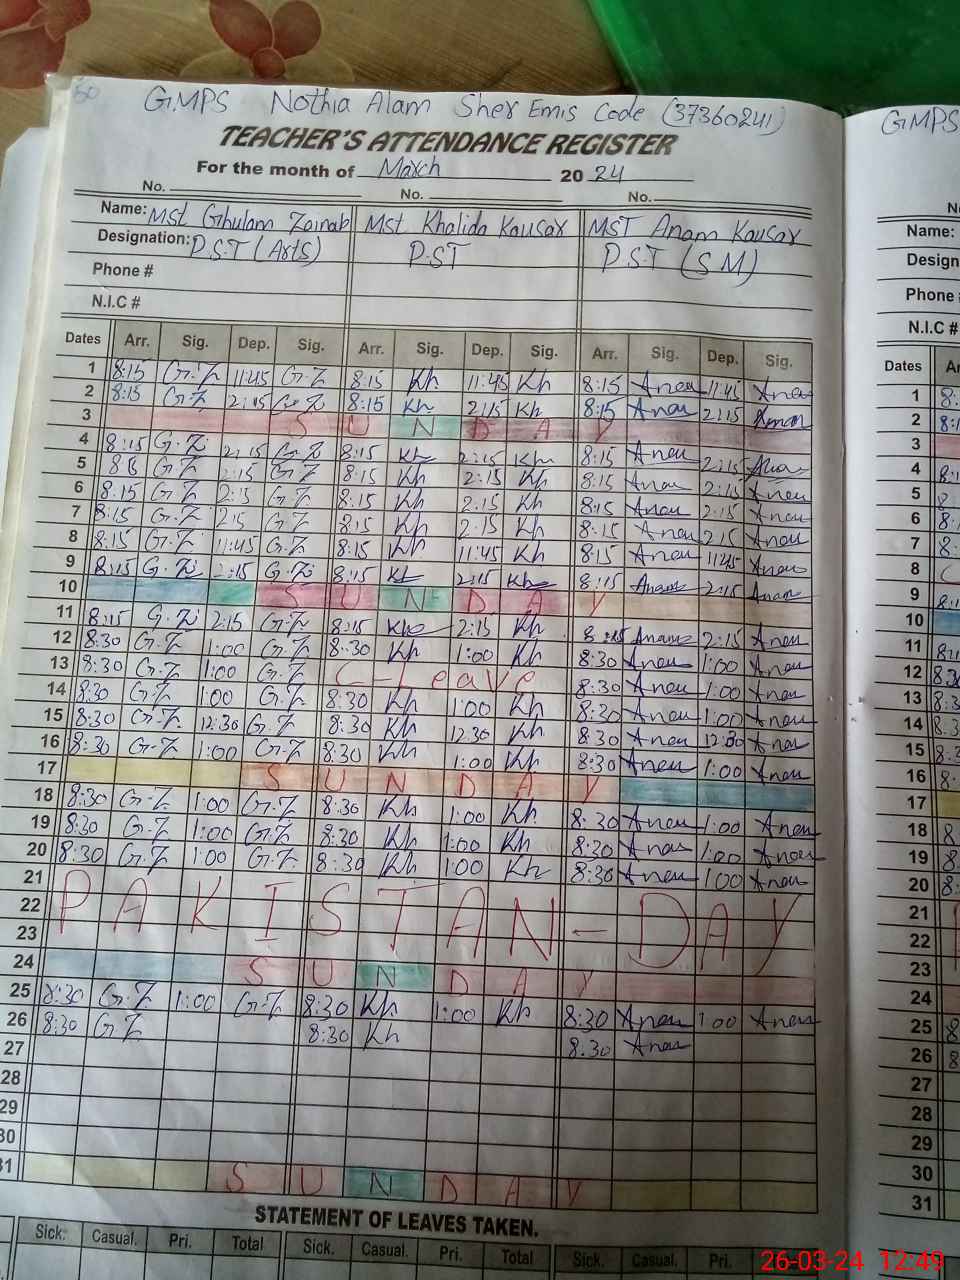 60
G.MPS Nothia Alam Sher Emis Code (37360241)
TEACHER'S ATTENDANCE REGISTER
For the month of March 2024
No. No. No.
Name: Mst Ghulam Zainab Mst Khalida Kausar MST Anam Kausar
Designation: P.S.T (Arts) P.ST P.S.T (S M)
Phone #
N.I.C #
Dates Arr. Sig. Dep. Sig. Arr. Sig. Dep. Sig. Arr. Sig. Dep. Sig.
1 8:15 G.Z 11:45 G.Z 8:15 Kh 11:45 Kh 8:15 Anam 11:45 Anam
2 8:15 G.Z 2:15 G.Z 8:15 Kh 2:15 Kh 8:15 Anam 2:15 Anam
3 SUNDAY
4 8:15 G.Z 2:15 G.Z 8:15 Kh 2:15 Kh 8:15 Anam 2:15 Anam
5 8:15 G.Z 2:15 G.Z 8:15 Kh 2:15 Kh 8:15 Anam 2:15 Anam
6 8:15 G.Z 2:15 G.Z 8:15 Kh 2.15 Kh 8:15 Anam 2:15 Anam
7 8:15 G.Z 2:15 G.Z 8:15 Kh 2:15 Kh 8:15 Anam 2:15 Anam
8 8:15 G.Z 11:45 G.Z 8:15 Kh 11:45 Kh 8:15 Anam 11:45 Anam
9 8:15 G.Z 2:15 G.Z 8:15 Kh 2:15 Kh 8:15 Anam 2:15 Anam
10 SUNDAY
11 8:15 G.Z 2:15 G.Z 8:15 Kh 2:15 Kh 8:15 Anam 2:15 Anam
12 8:30 G.Z 1:00 G.Z 8:30 Kh 1:00 Kh 8:30 Anam 1:00 Anam
13 8:30 G.Z 1:00 G.Z C-Leave 8:30 Anam 1:00 Anam
14 8:30 G.Z 1:00 G.Z 8:30 Kh 1:00 Kh 8:30 Anam 1:00 Anam
15 8:30 G.Z 12:30 G.Z 8:30 Kh 12.30 Kh 8:30 Anam 12:30 Anam
16 8:30 G.Z 1:00 G.Z 8:30 Kh 1:00 Kh 8:30 Anam 1:00 Anam
17 SUNDAY
18 8:30 G.Z 1:00 G.Z 8:30 Kh 1:00 Kh 8:30 Anam 1:00 Anam
19 8:30 G.Z 1:00 G.Z 8:30 Kh 1:00 Kh 8:30 Anam 1:00 Anam
20 8:30 G.Z 1:00 G.Z 8:30 Kh 1:00 Kh 8:30 Anam 1:00 Anam
21
22 PAKISTAN-DAY
23
24 SUNDAY
25 8:30 G.Z 1:00 G.Z 8:30 Kh 1:00 Kh 8:30 Anam 1:00 Anam
26 8:30 G.Z 8:30 Kh 8.30 Anam
27
28
29
30
31 SUNDAY
STATEMENT OF LEAVES TAKEN.
Sick: Casual. Pri. Total Sick. Casual. Pri. Total Sick. Casual. Pri.
GMPS
Name:
Phone #
N.I.C #
Dates
1 8:
2
3
4
5
6
7
8
9
10
11
12
13
14
15
16
17
18
19
20
21
22
23
24
25
26
27
28
29
30
31
26-03-24 12:49